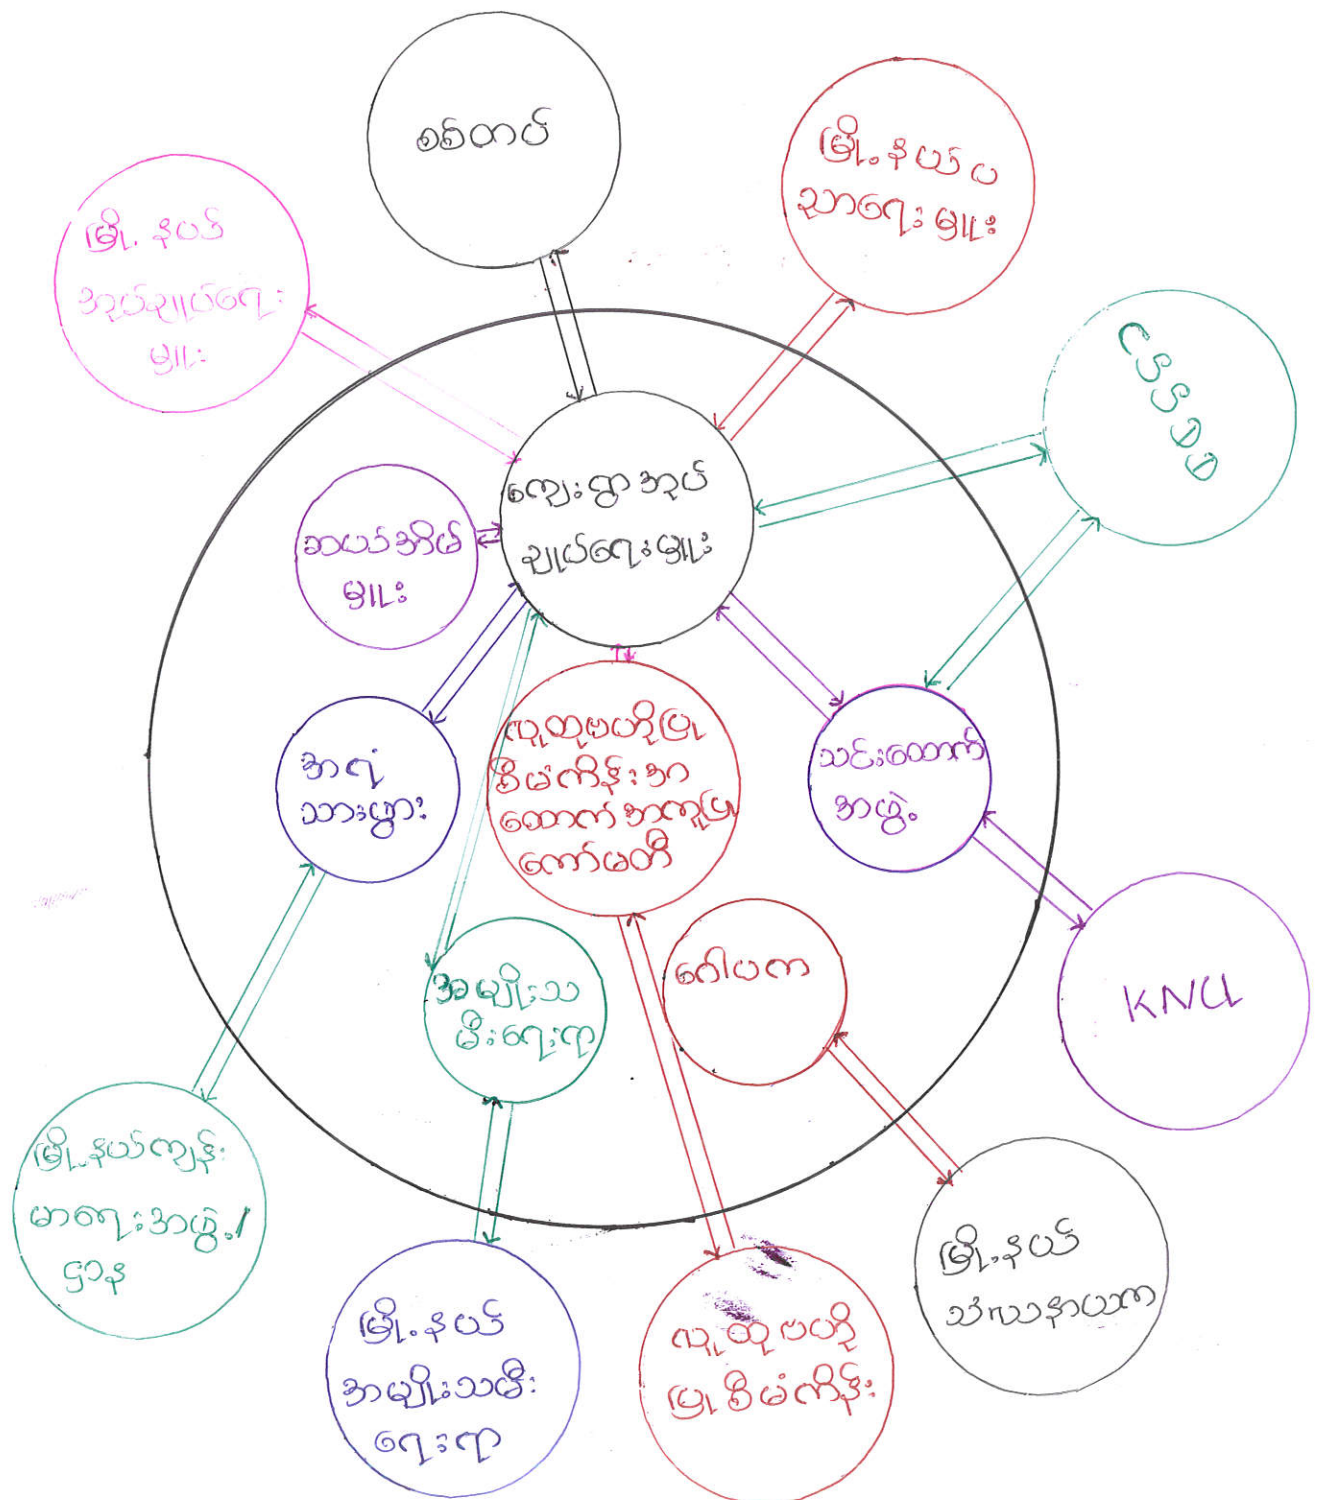 စစ်တပ်
မြို့နယ်ပ
ညာရေးမှူး
မြို့နယ်
အုပ်ချုပ်ရေး
မှူး
CSSDD
ကျေးရွာအုပ်
ချုပ်ရေးမှူး
ဆယ်အိမ်
မှူး
အရံ
သားဖွား
လူထုဗဟိုပြု
စီမံကိန်းအာ
ထောက်အကူပြု
ကော်မတီ
သင်းထောက်
အဖွဲ့
အမျိုးသ
မီးရေးရာ
ဂေါပက
KNU
မြို့နယ်ကျန်း
မာရေးအဖွဲ့/
ဌာန
မြို့နယ်
အမျိုးသမီး
ရေးရာ
လူထုဗဟို
ပြုစီမံကိန်း
မြို့နယ်
သံဃနာယက